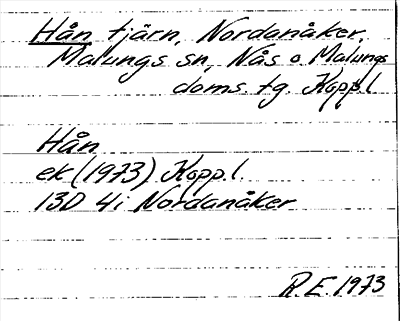 Hån tjärn, Nordanåker,
Malungs sn, Nås o Malungs
doms. tg. Kopp.l
Hån
ek (1973) Kopp.l.
13D 4i Nordanåker
R.E. 1973